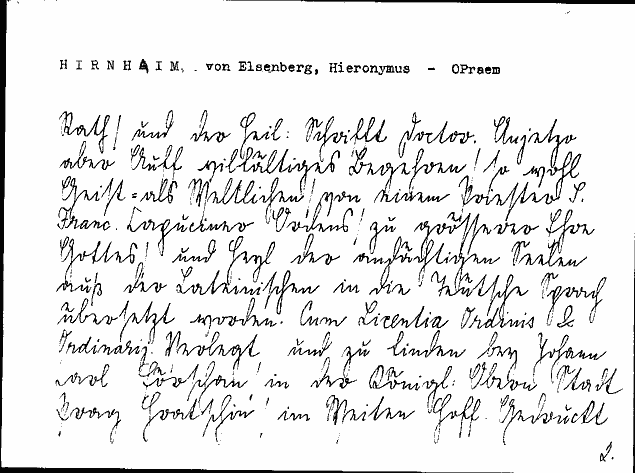 HIRNHAIM, von Elsenberg, Hieronymus - OPraem
Rath/ und der Heil: Schrifft Doctor. Anjetzo
aber Auff villfältiges Begehren/ so wohl
Geist=als Weltlichen/ von einem Priester S.
Franc. Capuciner Ordens/ zu grösserer Ehre
Gottes/ und Heyl der andächtigen Seelen
auß der Lateinischen in die Teütsche Sprach
übersetzt worden. Cum Licentia Ordinis &
Ordinarij. Verlegt und zu finden bey Johann
Carl in der Königl: Obern Stadt
Prag Hratschin/ im Weiten Hoff. Gedruckt
2.